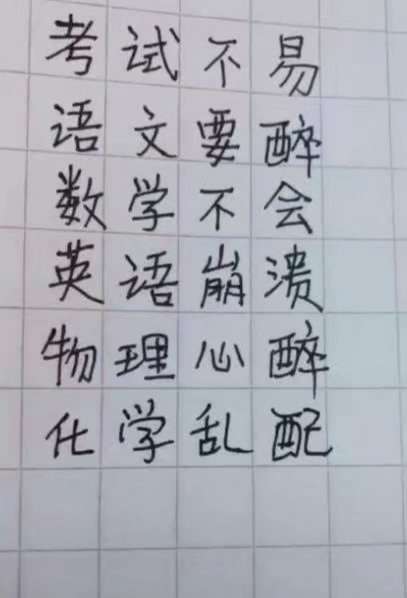 考试不易
语文要醉
数学不会
英语崩溃
物理心醉
化学乱配